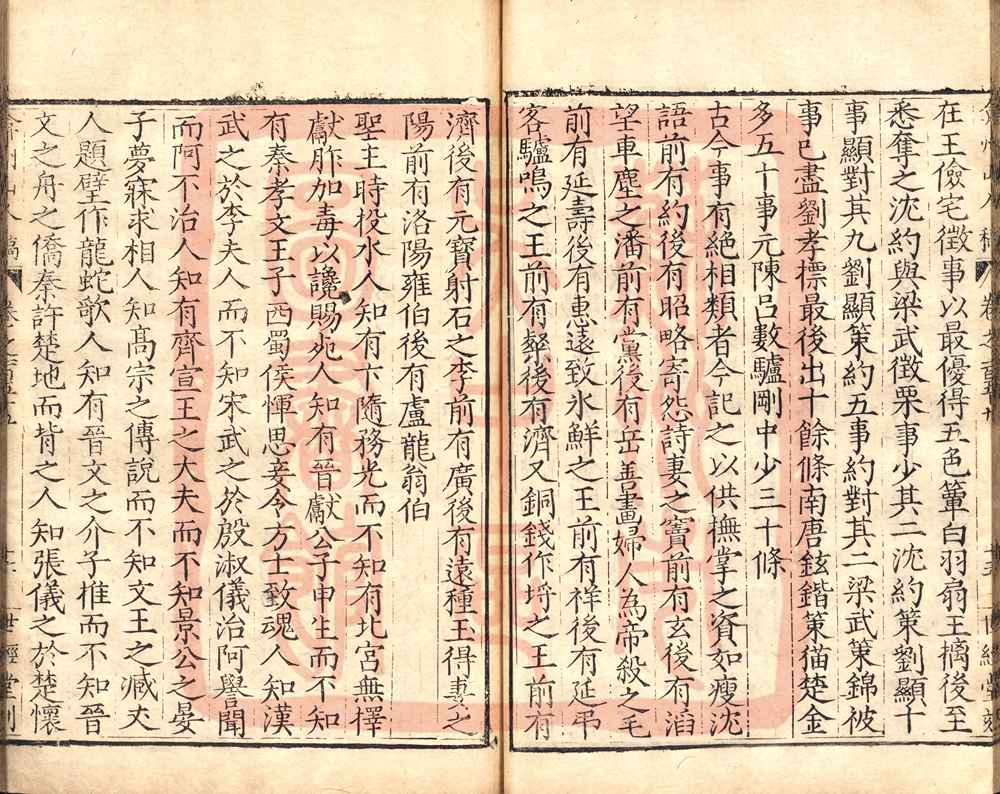 在王儉宅徵事以最優得五色簟白羽扇王摛後至
悉奪之沈約與梁武徵栗事少其二沈約策劉顯十
事顯對其九劉顯策約五事約對其二梁武策錦被
事已盡劉孝標最後出十餘條南唐鉉鍇策猫楚金
多五十事元陳呂數驢剛中少三十條
古今事有絕相類者今記之以供撫掌之資如瘦沈
語前有約後有昭略寄怨詩妻之竇前有玄後有滔
望車塵之潘前有黨後有岳善畫婦人為帝殺之毛
前有延壽後有惠遠致氷鮮之王前有祥後有延弔
客驢鳴之王前有粲後有濟又銅錢作埒之王前有
濟後有元寶射石之李前有廣後有遠種玉得妻之
陽前有洛陽雍伯後有盧龍翁伯
聖主一時役水人知有卞隨務光而不知有北宮無擇
獻胙加毒以讒賜死人知有晉獻公子申生而不知
有秦孝文王子西蜀侯惲思妾令方士致魂人知漢
武之於李夫人而不知宋武之於殷淑儀治阿譽聞
而阿不治人知有齊宣王之大夫而不知景公之晏
子夢寐求相人知高宗之傅說而不知文王之臧丈
人題壁作龍蛇歌人知有晉文之介子推而不知晉
文之舟之僑秦許楚地而背之人知張儀之於楚懷
世經堂刻